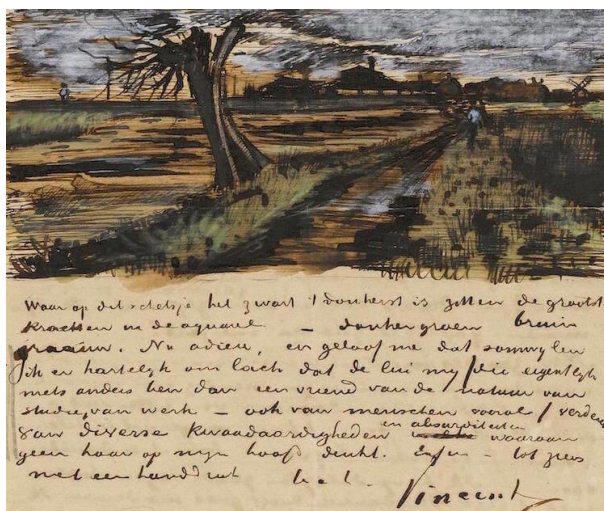 Waar op dit schetsje het zwart 't donkerst is zitten de grootst
krachten in de aquarel — donkergroen bruin
graauw. Nu adieu, en geloof me dat somwylen
ik er hartelyk om lach dat de lui my /die eigentlyk
niets anders ben dan een vriend van de natuur van
studie van werk — ook van menschen vooral/ verden
van diverse kwaadaardigheden en absurditeiten waaraan
geen haar op myn hoofd denkt. Enfin — tot ziens
met een handdruk t. à t.
Vincent